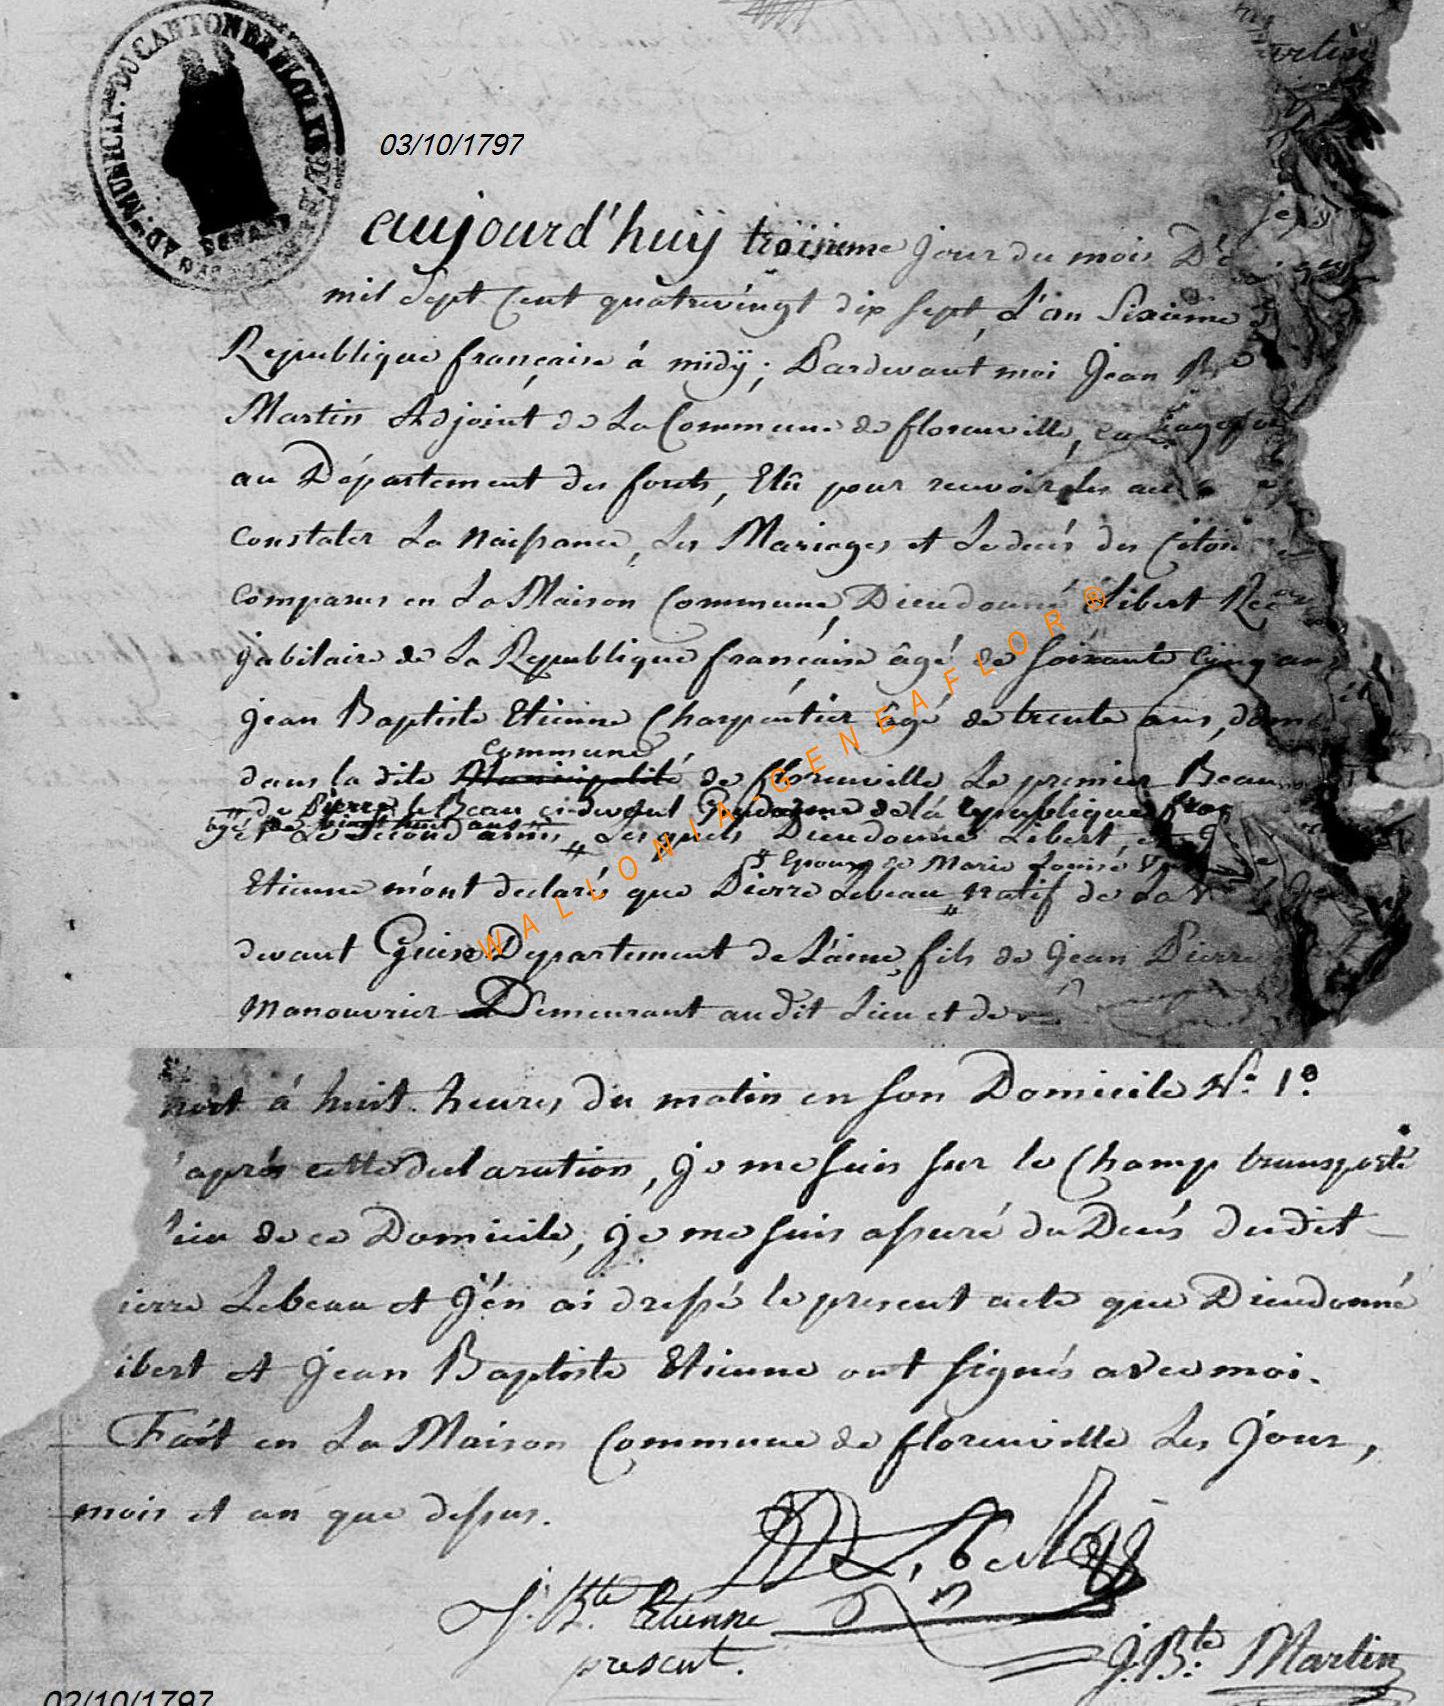 AD. MUNICIP. DU CANTON DE FLORENVILLE
artin
03/10/1797
aujourd'huÿ troisieme jour du mois D'
mil Sept Cent quatrevingt dix sept, L'an Sixieme
Republique française à midÿ; Pardevant moi Jean Bte
Martin Adjoint de La Commune de florenville,
au Département des forets, Elû pour recevoir les
constater La Naissance, Les Mariages et Le decés des
comparus en La Maison Commune, Dieudonné Libert
jubilaire de La Republique française âgé de soixante cinq ans
Jean Baptiste Etienne Charpentier âgé de trente ans,
Commune
dans la dite Municipalité de florenville Le premier Beau
de Pierre le Beau ci-devant Gendarme de la republique
âgé de vingt huit ans
et Le Second amis, Lesquels Dieudonné Libert, et
Epoux de Marie Louise
Etienne m'ont declaré que Pierre Lebeau natif de La
devant Guise Departement de L'aine, fils de Jean Pierre
Manouvrier Demeurant audit Lieu et de
WALLONIA-GENEAFLOR ®
mort à huit heures du matin en son Domicile N.° 1°
'après cette declaration, Je me suis sur le Champ transporté
lieu de ce Domicile, Je me suis assuré du Decés dudit
ierre Lebeau et J'en ai dressé le present acte que Dieudonné
ibert et Jean Baptiste Etienne ont signés avec moi.
Fait en La Maison Commune de florenville Les Jour,
mois et an que dessus.
D Libert
J. Bte Etienne
present.
J. Bte Martin
02/10/1797